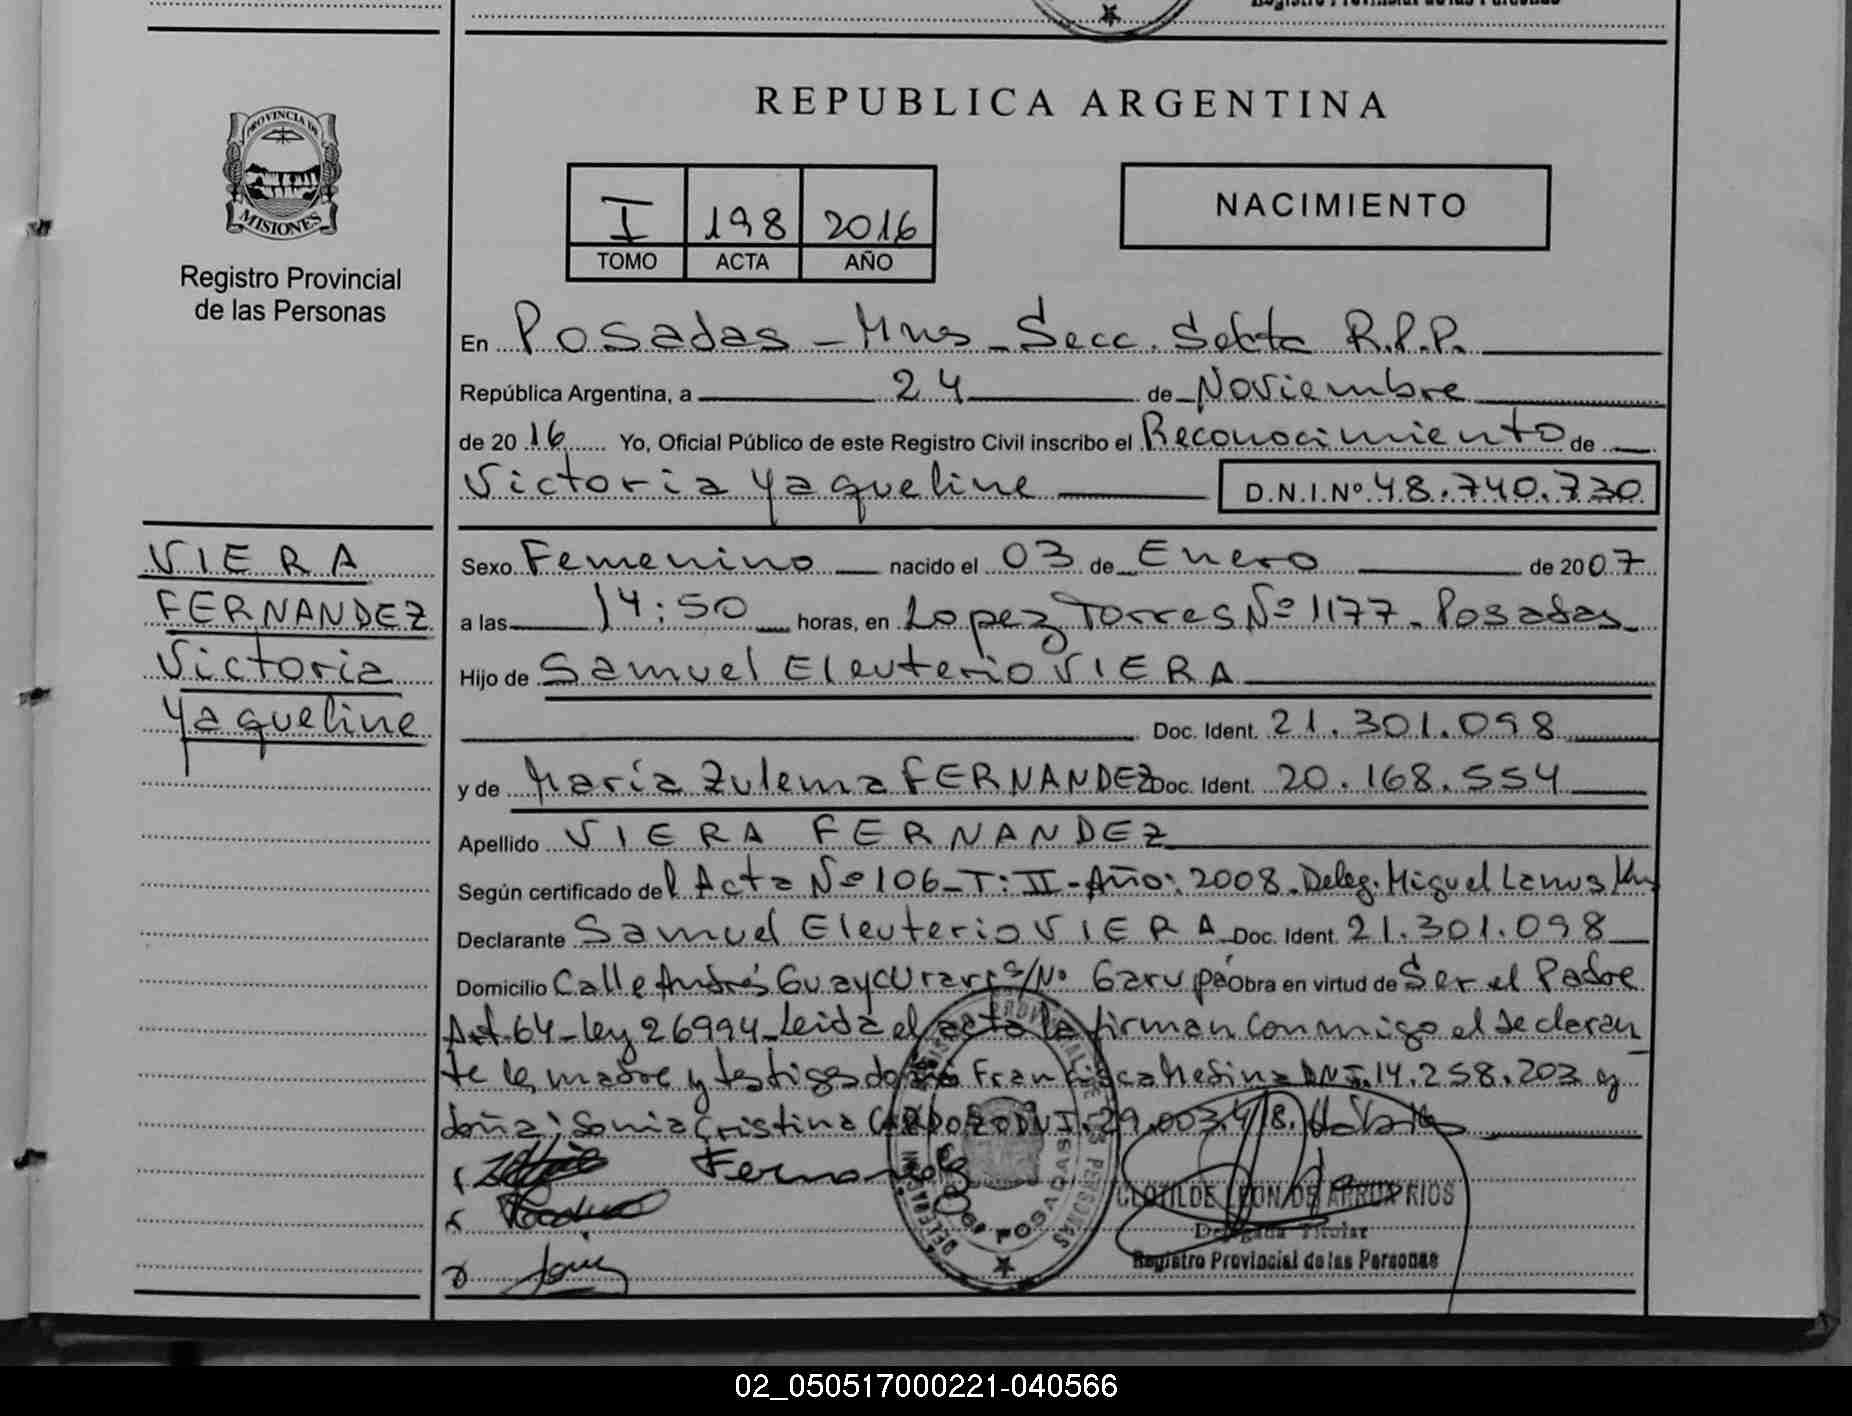 Registro Provincial de las Personas
REPUBLICA ARGENTINA
PROVINCIA DE
MISIONES
Registro Provincial
de las Personas
I 198 2016
TOMO ACTA AÑO
NACIMIENTO
En Posadas - Mns - Secc. Sexta R.P.P.
República Argentina, a 24 de Noviembre
de 2016 Yo, Oficial Público de este Registro Civil inscribo el Reconocimiento de
Victoria Yaqueline D.N.I.Nº 48.740.730
VIERA
FERNANDEZ
Victoria
Yaqueline
Sexo Femenino nacido el 03 de Enero de 2007
a las 14:50 horas, en Lopez Torres Nº 1177 - Posadas
Hijo de Samuel Eleuterio VIERA
Doc. Ident. 21.301.098
y de María Zulema FERNANDEZ Doc. Ident. 20.168.554
Apellido VIERA FERNANDEZ
Según certificado del Acta Nº 106 - T: II - Año: 2008. Deleg. Miguel Lanus
Declarante Samuel Eleuterio VIERA Doc. Ident. 21.301.098
Domicilio Calle Andrés Guaycurari s/Nº Garupá Obra en virtud de Ser el Padre
Art. 64 - Ley 26994 - Leida el acta la firman conmigo el declaran
te la madre y testigos Francisca Medina DNI. 14.258.203 y
doña; Sonia Cristina CARDOZO DNI. 29.003.418.
Fernandez
CLOTILDE LEON DE RIOS
Delegada Titular
Registro Provincial de las Personas
POSADAS
02_050517000221-040566